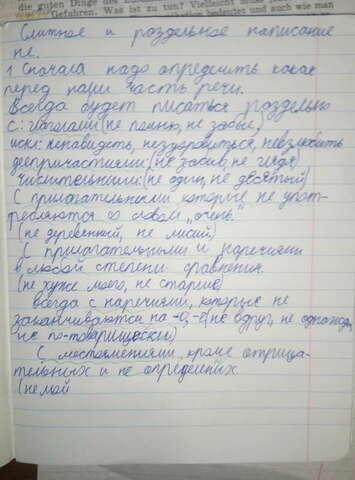 die guten Dinge des
Gefahren. Was ist zu tun? Vielleicht
bedeutet und auch wie man
Слитное и раздельное написание
не.
1. Сначала надо определить какая
перед нами часть речи.
Всегда будет писаться раздельно
с: глаголами (не помню, не забыв)
искл: ненавидеть, нездоровиться, невзлюбить
деепричастиями: (не забыв, не глядя)
числительными: (не один, не десятый)
С прилагательными которые не упот-
ребляются со словом „очень"
(не деревянный, не лисий)
С прилагательными и наречиями
в любой степени сравнения.
(не хуже моего, не старше)
всегда с наречиями, которые не
заканчиваются на -о, -е (не вдруг, не однажды,
не по-товарищески)
С местоимениями, кроме отрица-
тельных и не определённых.
(не мой